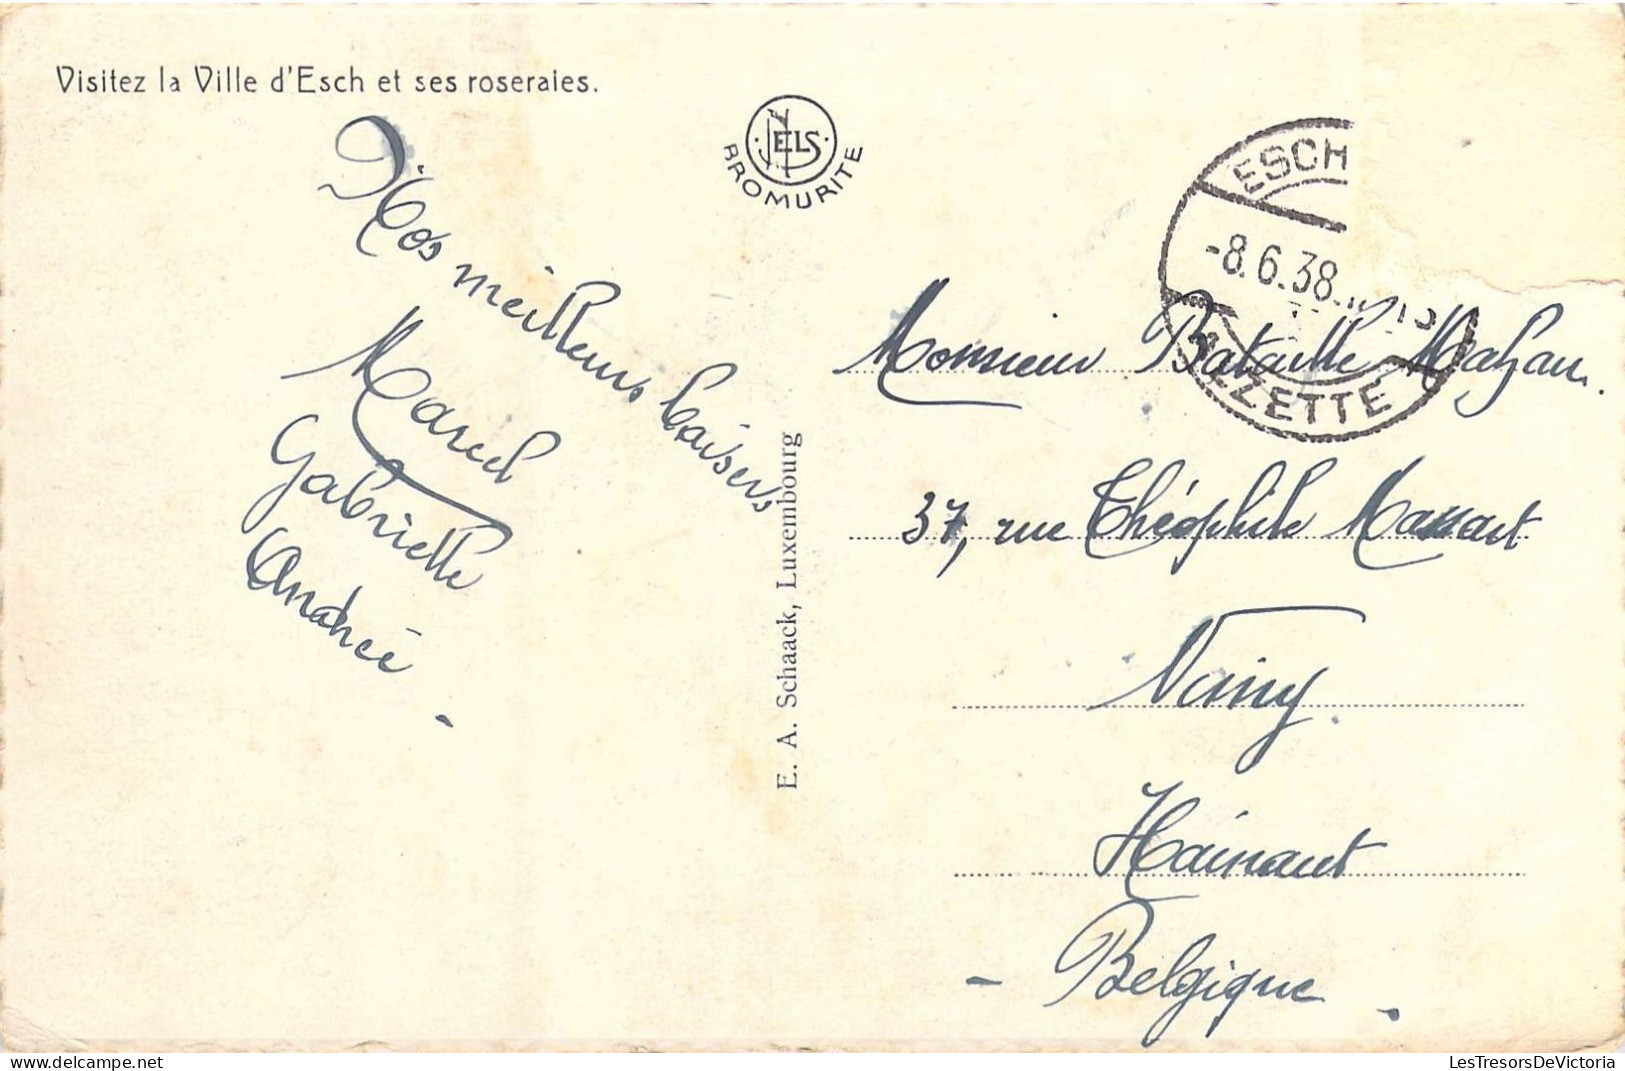 Visitez la Ville d'Esch et ses roseraies.
NELS
BROMURITE
ESCH
-8.6.38.
ALZETTE
Nos meilleurs baisers
Marcel
Gabrielle
Andrée -
E. A. Schaack, Luxembourg
Monsieur Bataille
37, rue Théophile Massart
Nimy.
Hainaut
- Belgique .
LesTresorsDeVictoria
delcampe.net